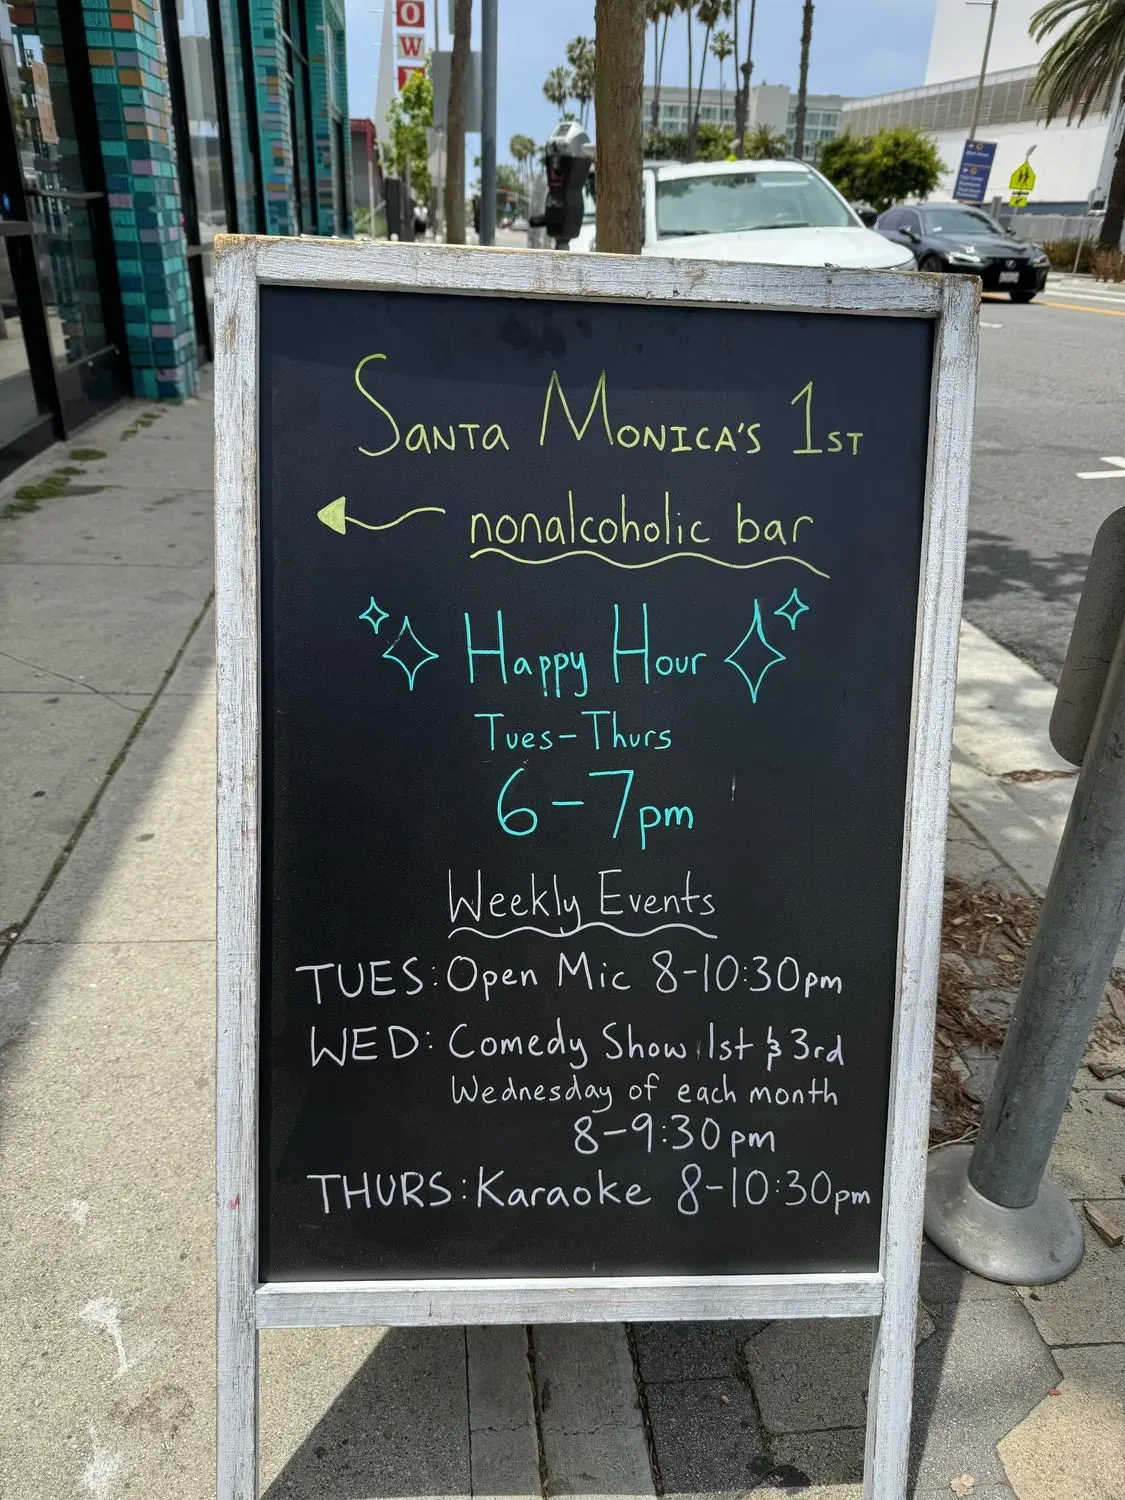 OW
SANTA MONICA'S 1ST
nonalcoholic bar
Happy Hour
Tues-Thurs
6-7pm
Weekly Events
TUES: Open Mic 8-10:30pm
WED: Comedy Show 1st & 3rd
Wednesday of each month
8-9:30pm
THURS: Karaoke 8-10:30pm